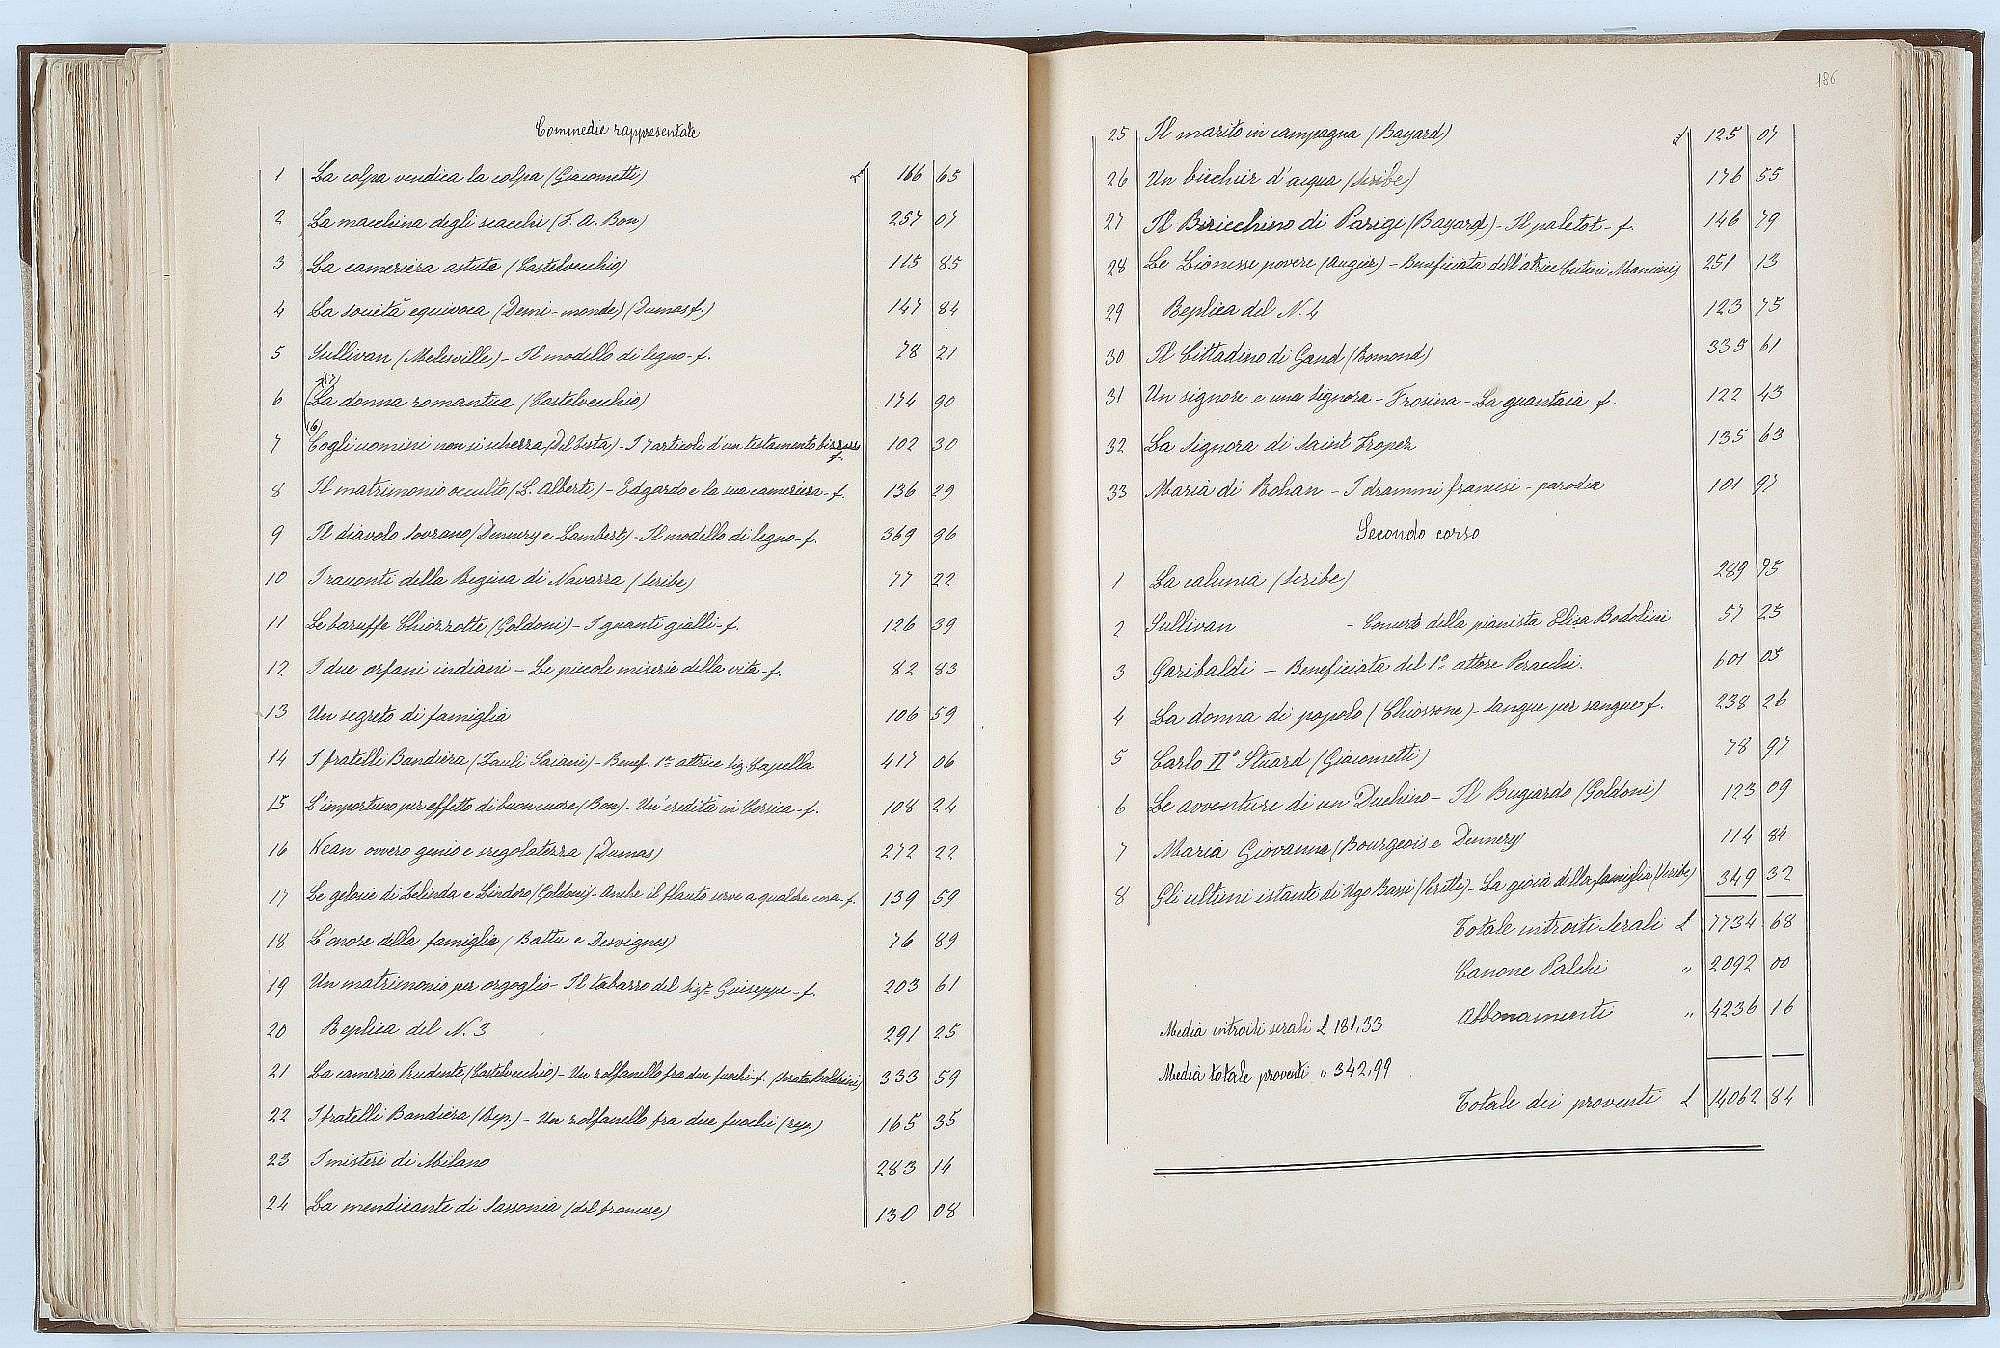 Commedie rappresentate
1 La colpa vendica la colpa (Giacometti) £ 166 65
2 La macchina degli scacchi (F. A. Bon) 257 07
3 La cameriera astuta (Castelvecchio) 115 85
4 La società equivoca (Demi-monde) (Dumas f.) 147 84
5 Sullivan (Melesville) - Il modello di legno - f. 78 21
(7)
6 La donna romantica (Castelvecchio) 174 90
(6)
7 Cogli uomini non si scherza (Del Testa) - I 7 articoli d'un testamento bizzarro f. 102 30
8 Il matrimonio occulto (L. Alberti) - Edgardo e la sua cameriera - f. 136 29
9 Il diavolo Sovrano (Dennery e Lambert) - Il modello di legno - f. 369 96
10 I racconti della Regina di Navarra (Scribe) 77 22
11 Le baruffe Chiozzotte (Goldoni) - I guanti gialli - f. 126 39
12 I due orfani indiani - Le piccole miserie della vita - f. 82 83
13 Un segreto di famiglia 106 59
14 I fratelli Bandiera (Zauli Saiani) - Benef. 1ª attrice sig. Capella 417 06
15 L'importuno per effetto di buon cuore (Bon) - Un'eredità in Corsica - f. 108 24
16 Kean ovvero genio e sregolatezza (Dumas) 272 22
17 Le gelosie di Zelinda e Lindoro (Goldoni) - Anche il flauto serve a qualche cosa - f. 139 59
18 L'onore della famiglia (Battu e Desvignes) 76 89
19 Un matrimonio per orgoglio - Il tabarro del sigʳ Giuseppe - f. 203 61
20 Replica del N. 3 291 25
21 La cameriera Prudente (Castelvecchio) - Un zolfanello fra due fuochi - f. 333 59
22 I fratelli Bandiera (Rep.) - Un zolfanello fra due fuochi (rep.) 165 35
23 I misteri di Milano 283 14
24 La mendicante di Sassonia (dal francese) 130 08
186
25 Il marito in campagna (Bayard) £ 125 07
26 Un bicchier d'acqua (Scribe) 176 55
27 Il Biricchino di Parigi (Bayard) - Il paletot - f. 146 79
28 Le Lionesse povere (Augier) - Beneficiata dell'attrice Mancini 251 13
29 Replica del N. 4 123 75
30 Il Cittadino di Gand (Romond) 335 61
31 Un signore e una signora - Frosina - La guantaia f. 122 43
32 La Signora di Saint Tropez 135 63
33 Maria di Rohan - I drammi francesi - parodia 101 97
Secondo corso
1 La calunia (Scribe) 289 75
2 Sullivan - Concerto della pianista Elisa Bodolini 57 25
3 Garibaldi - Beneficiata del 1º attore Peracchi. 601 05
4 La donna di popolo (Chiossone) - Sangue per sangue f. 238 26
5 Carlo IIº Stuard (Giacometti) 78 97
6 Le avventure di un Duchino - Il Bugiardo (Goldoni) 123 09
7 Maria Giovanna (Bourgeois e Dennery 114 84
8 Gli ultimi istanti di Ugo Bassi - La gioia della famiglia (Scribe) 349 32
Totale introiti serali £ 7734 68
Canone Palchi " 2092 00
Abbonamenti " 4236 16
Media introiti serali £ 181,33
Media totale proventi " 342,99
Totale dei proventi £ 14062 84